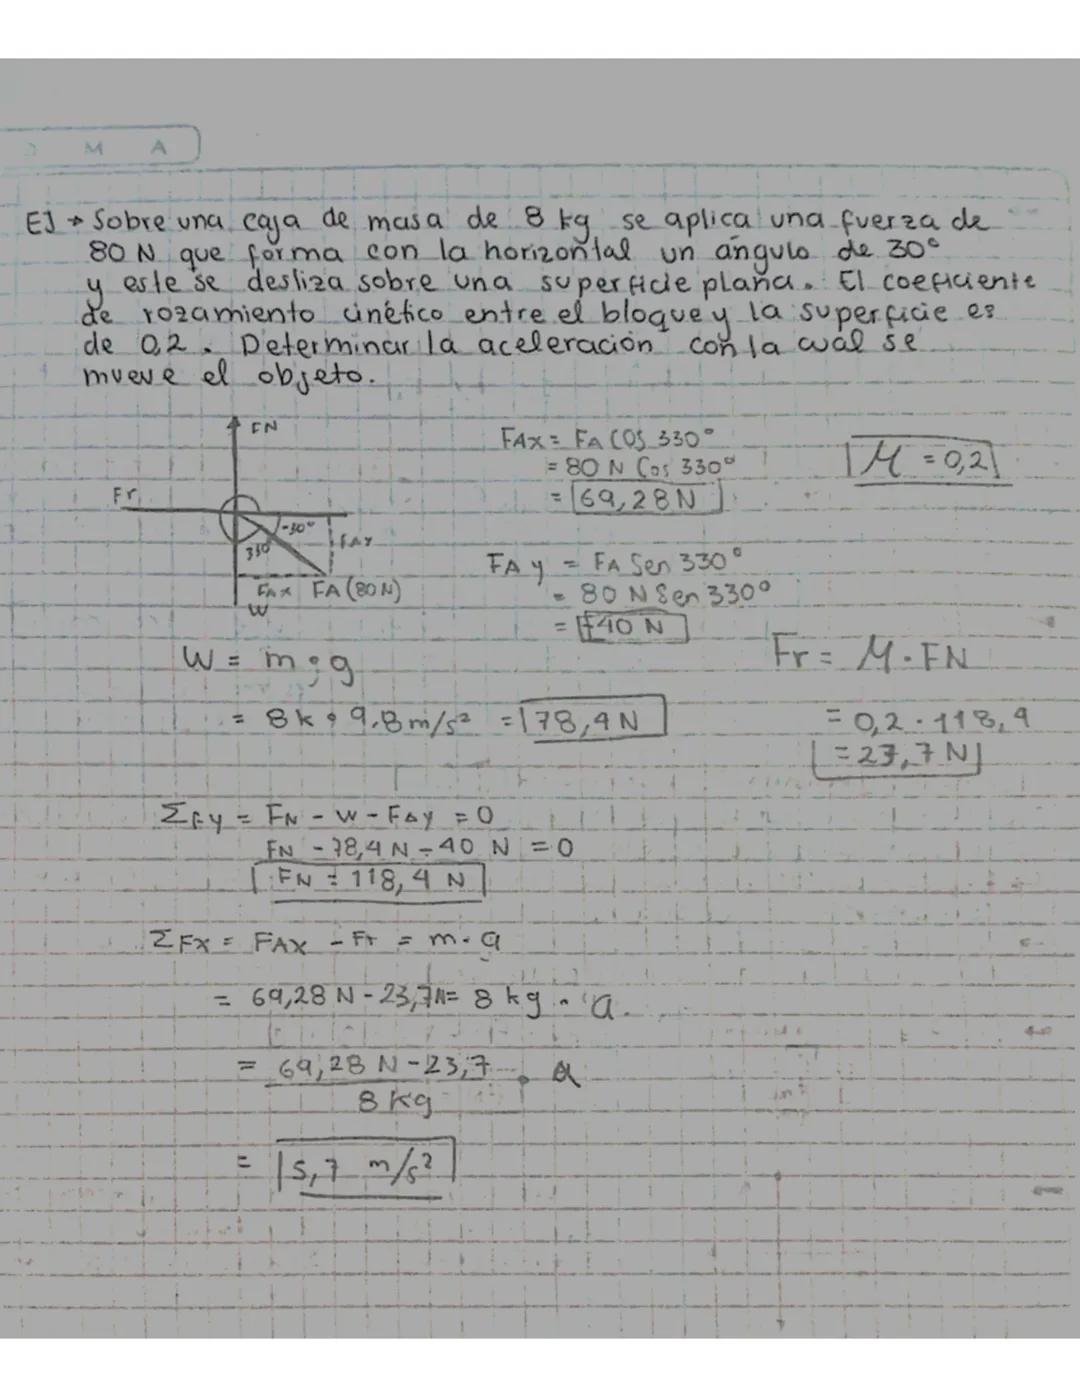 D M A
EJ → Sobre una caja de masa de 8 kg se aplica una fuerza de
80 N que forma con la horizontal un angulo de 30°
y este se desliza sobre una superficie plana. El coeficiente
de rozamiento cinético entre el bloque y la superficie es
de 0,2. Determinar la aceleración con la cual se
mueve el objeto.
FN
Fr
-30°
330
FAY
FAX FA (80 N)
W
FAX = FA COS 330°
= 80 N Cos 330°
= 69,28 N
M = 0,2
FAy = FA Sen 330°
= 80 N Sen 330°
= 40 N
W = m . g
= 8k . 9,8 m/s² = 78,4 N
Fr = M . FN
= 0,2 . 118,4
= 23,7 N
ΣFy = FN - W - FAy = 0
FN - 78,4 N - 40 N = 0
FN = 118,4 N
ΣFX = FAX - Fr = m . a
= 69,28 N - 23,7 N = 8 kg . a.
= 69,28 N - 23,7 . a
8 kg
= 5,7 m/s²